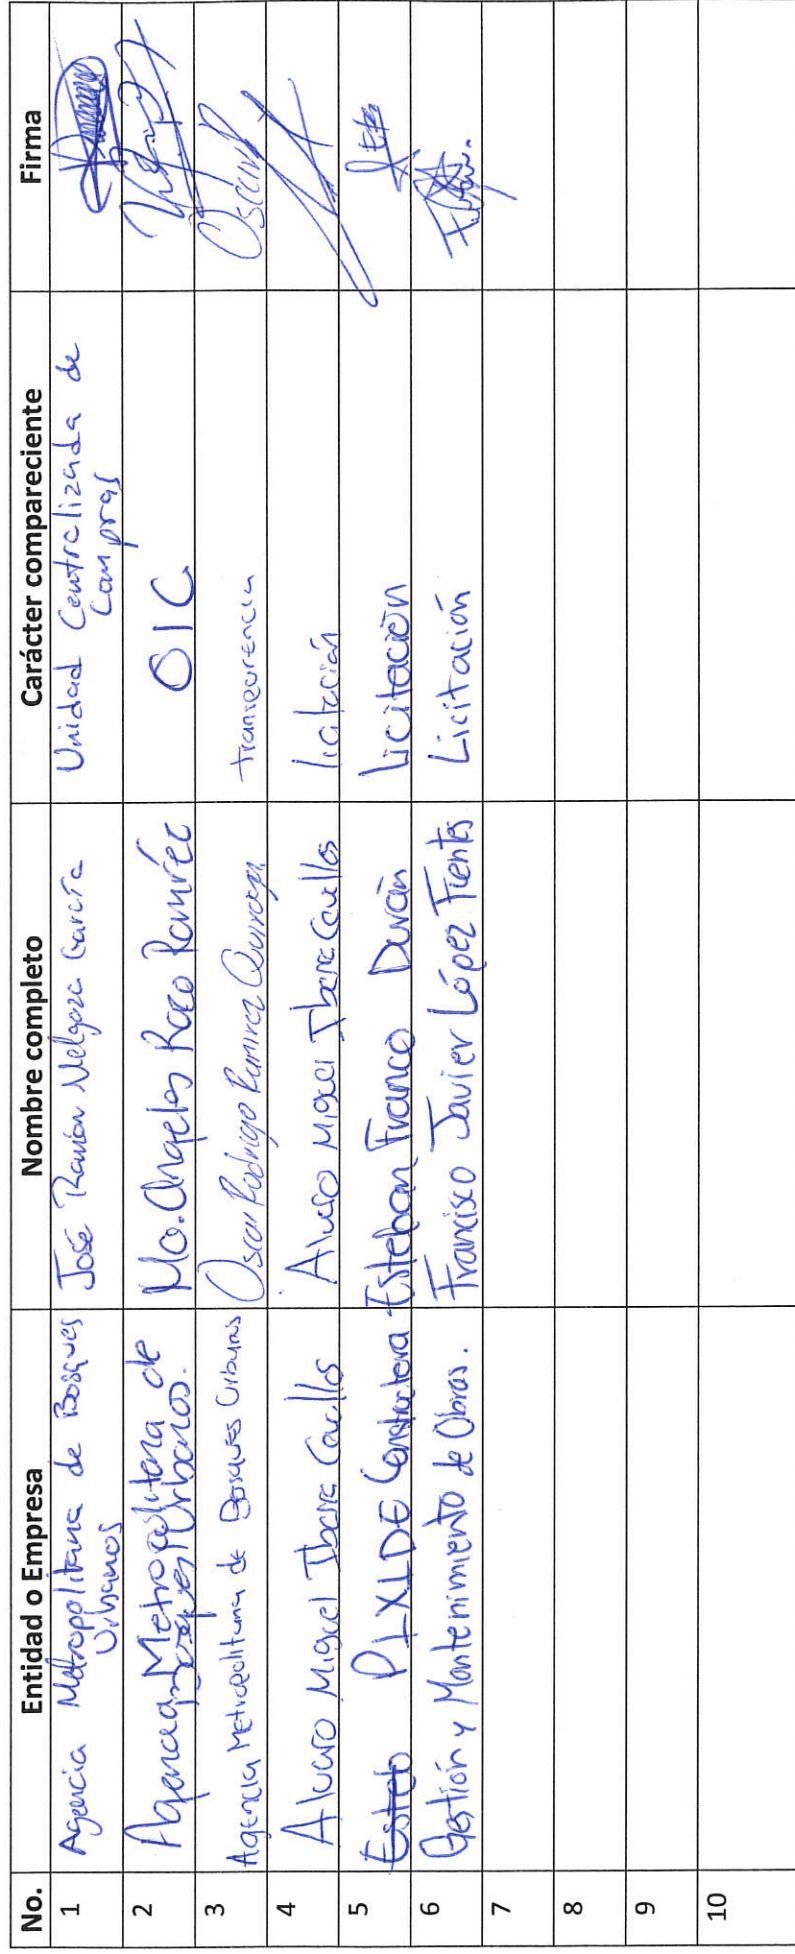 No. Entidad o Empresa Nombre completo Carácter compareciente Firma
1 Agencia Metropolitana de Bosques Urbanos José Ramón Melgoza García Unidad Centralizada de Compras
2 Agencia Metropolitana de Bosques Urbanos. Ma. Angeles Razo Ramírez OIC
3 Agencia Metropolitana de Bosques Urbanos Oscar Rodrigo Ramirez Quiroga transparencia Oscar
4 Alvaro Miguel Ibarra Casillas Alvaro Miguel Ibarra Casillas licitación
5 PIXIDE Constructora Esteban Franco Durán Licitación
6 Gestión y Mantenimiento de Obras. Francisco Javier López Fuentes Licitación
7
8
9
10